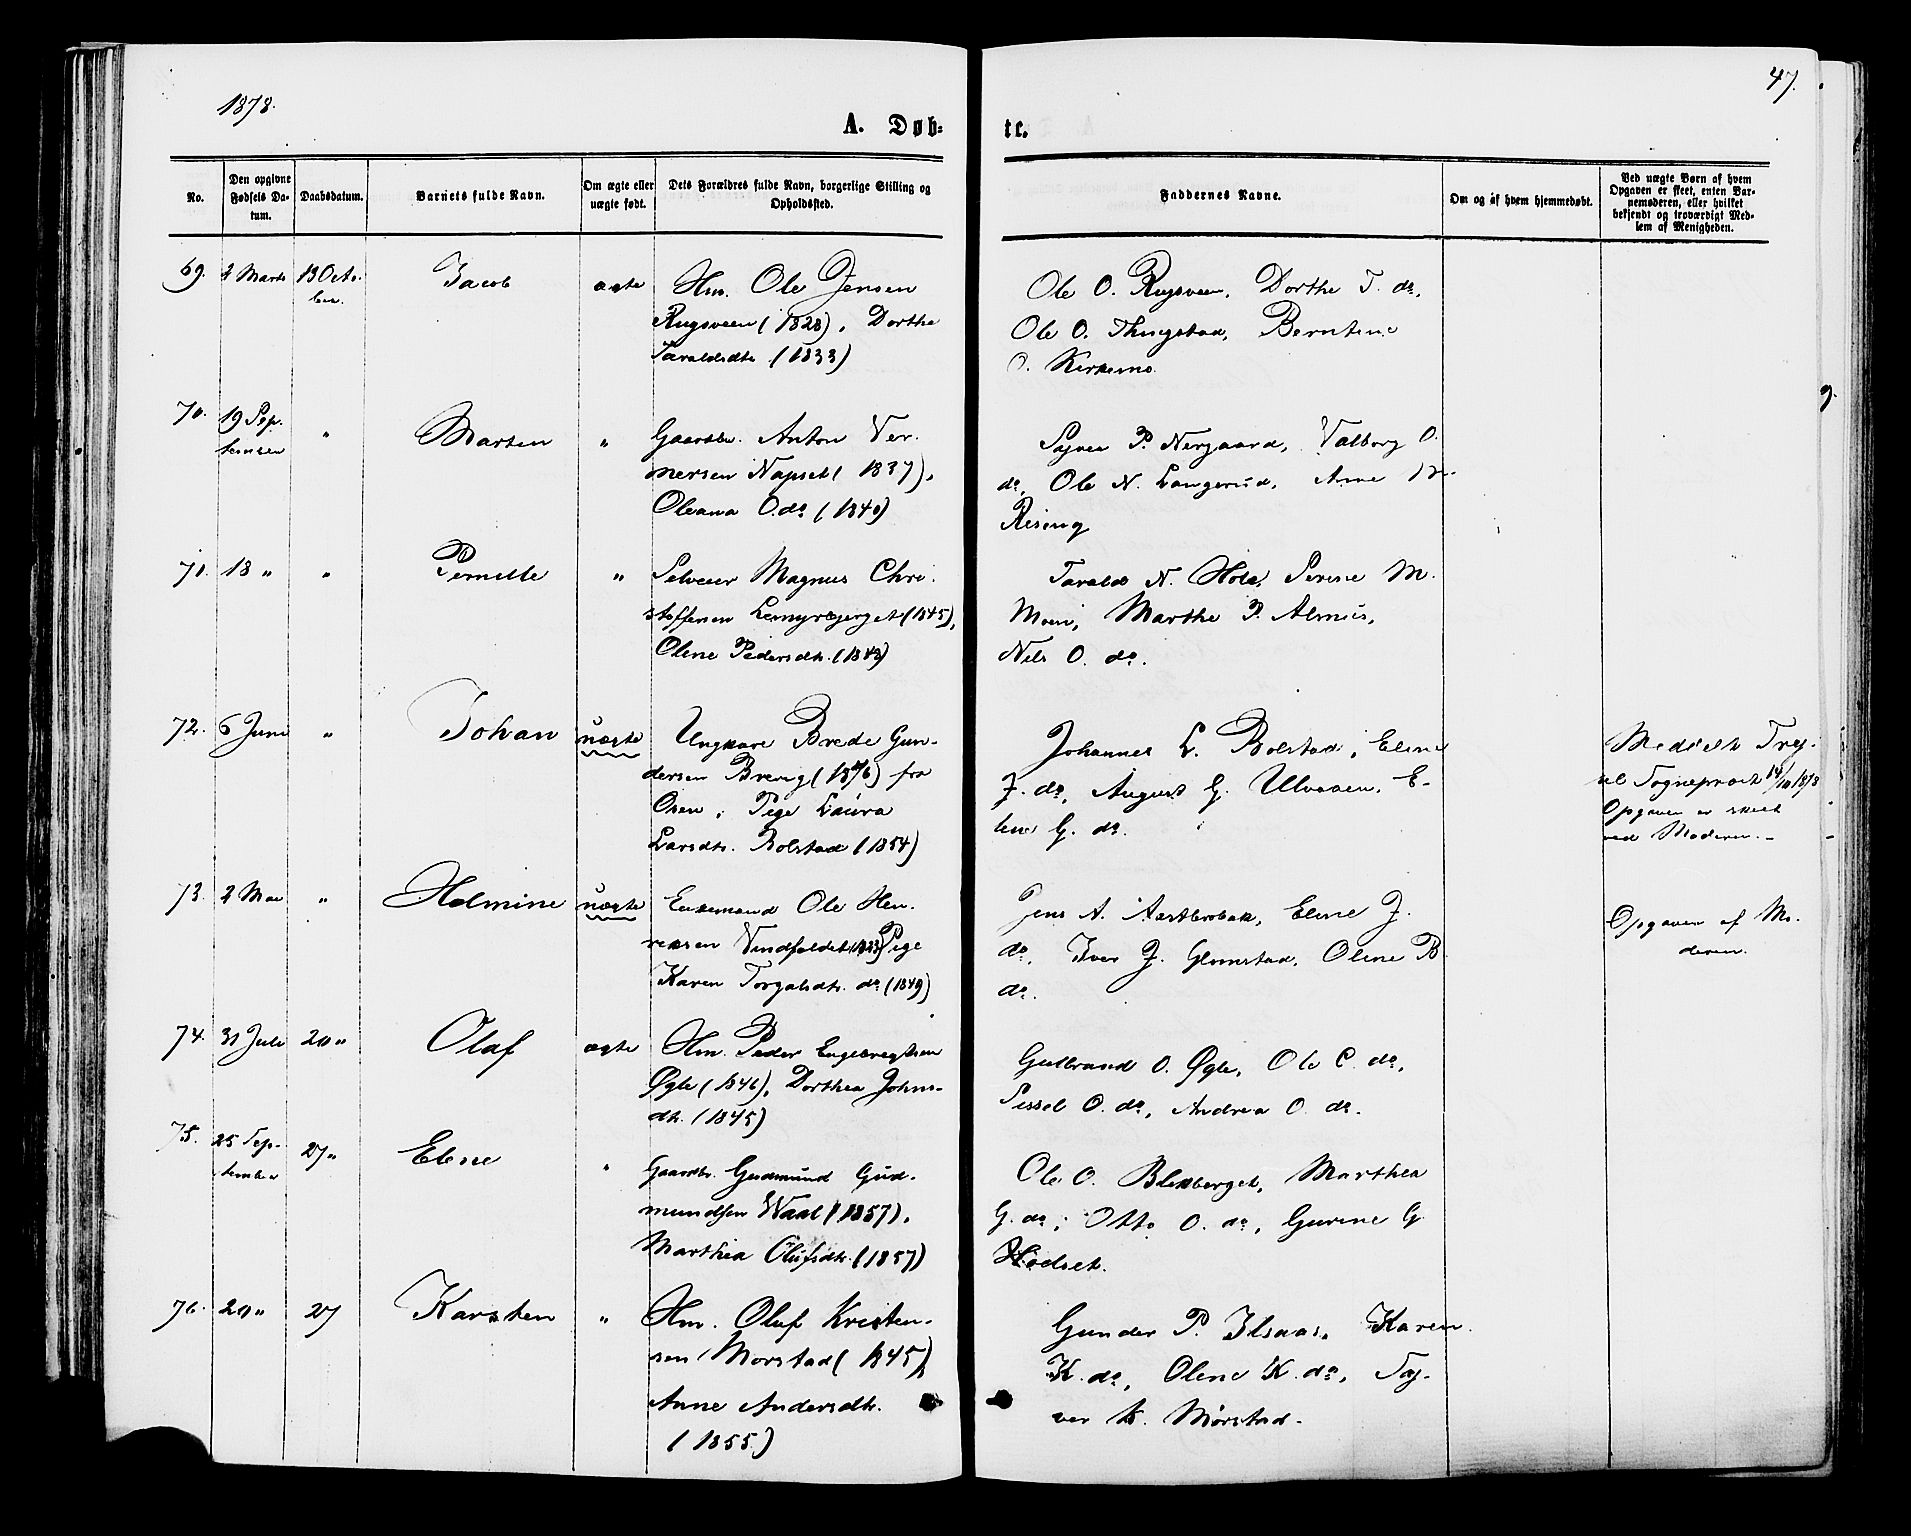 1878.
47.
A. Døb-
te.
No.
Den opgivne Fødsels Da-tum.
Daabsdatum.
Barnets fulde Navn.
Om ægte eller uægte født.
Dets Forældres fulde Navn, borgerlige Stilling og Opholdssted.
Faddernes Navne.
Om og af hvem hjemmedøbt.
Ved uægte Børn af hvem Opgaven er skeet, enten Bar-nemoderen, eller hvilket bekjendt og troværdigt Med-lem af Menigheden.
69. 2 Marts 13 Octo-
ber.
Jacob
ægte
Hm. Ole Jensen
Rugsveen (1828), Dorthe
Taraldsdtr (1833)
Ole O. Rugsveen, Dorthe T. do,
Ole O. Thingstad, Berntine
O. Kirkemo.
70. 19 Sep-
tember
"
Marten
"
Gaardbr. Anton Ver-
mersen Napset (1837),
Oleana O. do (1840)
P. Nergaard, Valborg O.
do, Ole N. Langerud, Arne
Rising
71. 18 " "
Pernille
"
Selveier Magnus Chri-
stoffersen (1845),
Olene Pedersdtr. (1843)
Tarald N. Hole, Serine M.
Moen, Marthe P. Almus,
Nils O. do.
72. 6 Juni "
Johan
uægte
Ungkarl Brede Gun-
dersen Brenig (1846) fra
Osen, Pige Laura
Larsdtr. Bolstad (1854)
Johannes L. Bolstad, Eline
J. do, August G. Ulvaaen, E-
line G. do.
Meddelt Try-
sil Sognepræst 14/10 1878
Opgaven er skeet
ved Moderen.-
73. 2 Mai "
Helmine
uægte
Enkemand Ole Hen-
riksen Vindfaldet (1823) Pige
Karen Torgalsdtr. do (1849)
Jens A. Aastebrobak, Eline J.
do, Iver J. Glomstad, Oline B.
do.
Opgaven af Mo-
deren.
74. 31 Juli 20 "
Olaf
ægte
Hm. Peder Engebregtsen
Øgle (1846), Dorthea Johns-
dtr. (1845)
Gulbrand O. Øgle, Ole C. do,
Sissel O. do, Andrea O. do.
75. 25 Sep-
tember
27 "
Elene
"
Gaardbr. Gudmund Gud-
mundsen Waal (1857),
Marthea Olufsdtr. (1857)
Ole O. Blekberget, Marthea
G. do, Otto O. do, Gurine G.
Hodset.
76. 20 " 27
Karsten
"
Hm. Oluf Kristen-
sen Mørstad (1845)
Anne Andersdtr.
(1855)
Gunder P. Ilsaas, Karen
K. do, Olene K. do, Sy-
ver K. Mørstad.